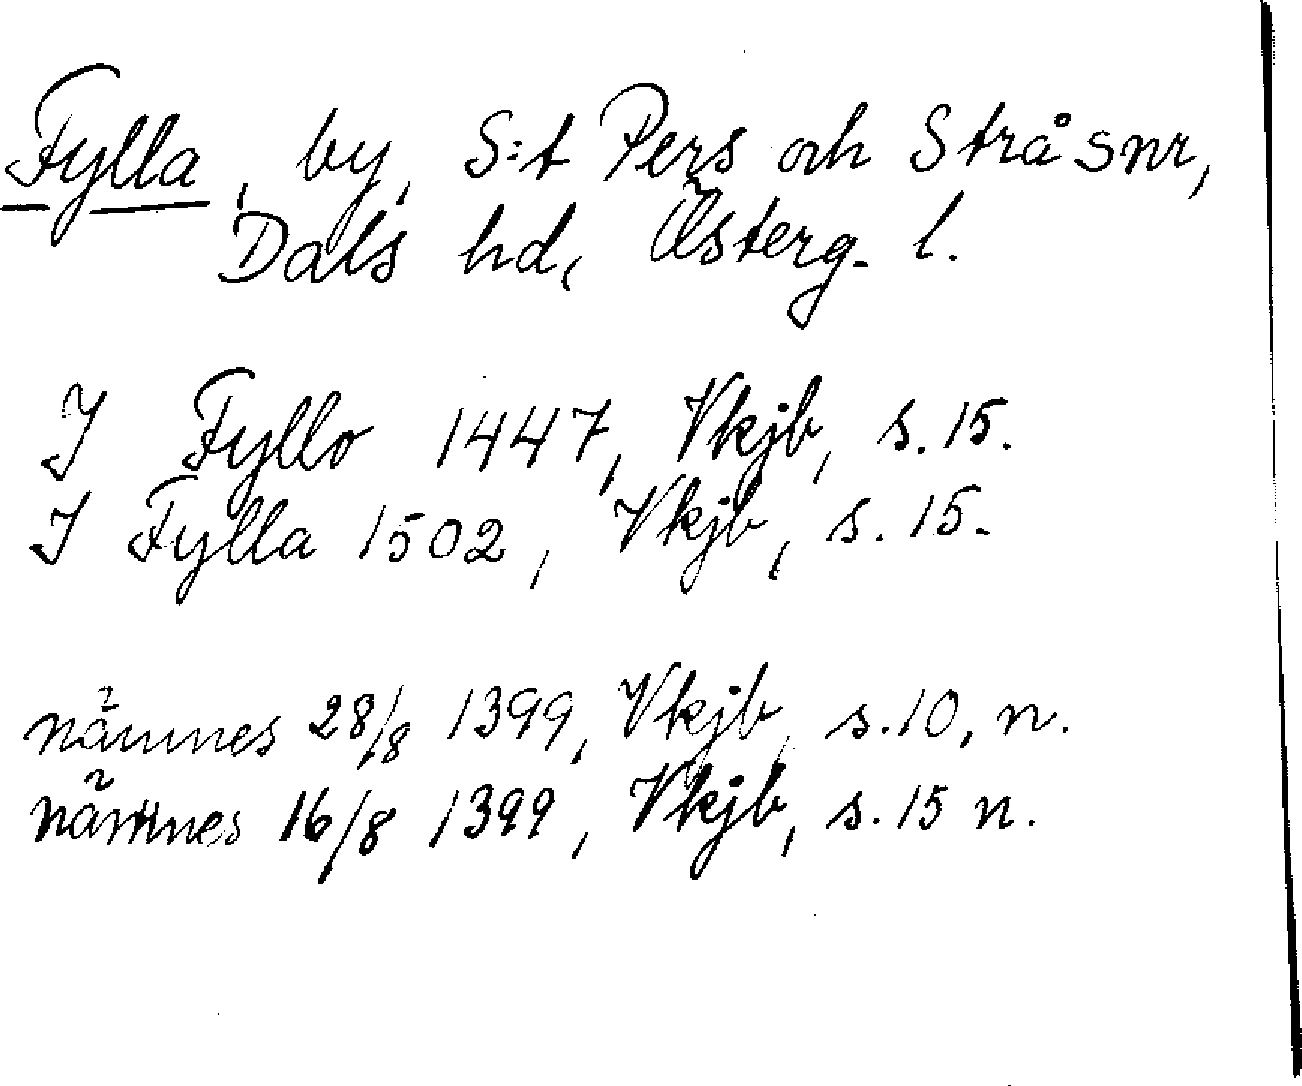 Fylla, by, S:t Pers och Strå snr,
Dals hd, Österg. l.
I Fyllo 1447, Vkjb, s. 15.
I Fylla 1502, Vkjb, s. 15.
nämnes 28/8 1399, Vkjb, s. 10, n.
nämnes 16/8 1399, Vkjb, s. 15 n.